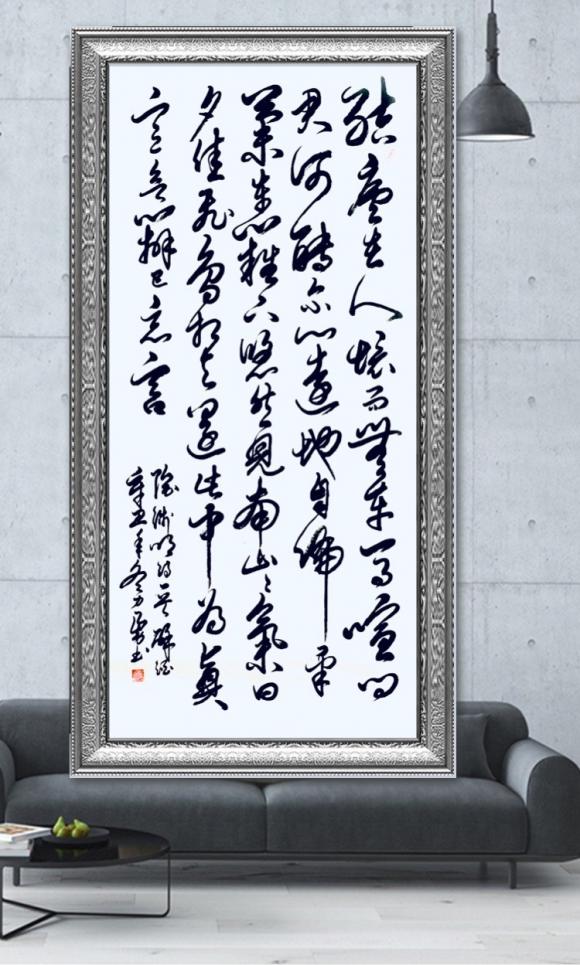 結廬在人境而無車馬喧問
君何能尔心遠地自偏采
菊東籬下悠然見南山〻氣日
夕佳飛鳥相与還此中为真
意欲辨已忘言
陶淵明詩一首
辛丑年冬月書